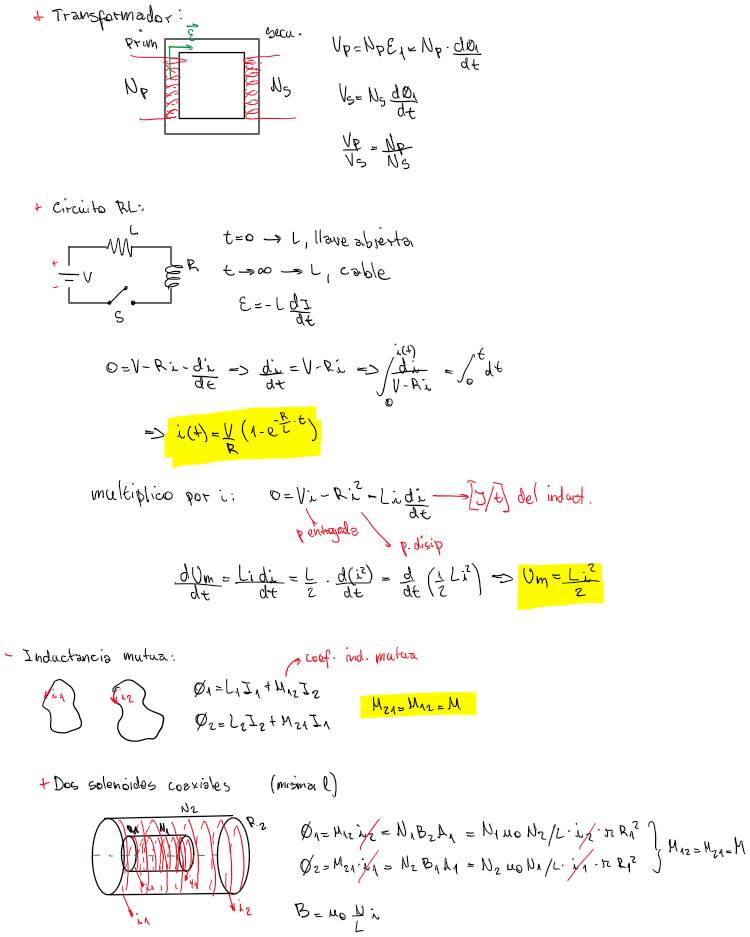 + Transformador:
prim
ε
secu.
Np
Ns
Vp = Np ε1 = Np · dØ1/dt
Vs = Ns dØ1/dt
Vp/Vs = Np/Ns
+ Circuito RL:
L
+
-
V
R
S
t=0 → L, llave abierta
t→∞ → L, cable
ε = -L dI/dt
0 = V - Ri - di/dt => di/dt = V - Ri => ∫0^i(t) di/(V - Ri) = ∫0^t dt
=> i(t) = V/R (1 - e^(-R/L · t))
multiplico por i: 0 = Vi - Ri² - Li di/dt → [J/t] del induct.
p entregada
p. disip
dUm/dt = Li di/dt = L/2 · d(i²)/dt = d/dt (1/2 Li²) => Um = Li²/2
- Inductancia mutua:
coef. ind. mutua
i1
i2
Ø1 = L1I1 + M12I2
Ø2 = L2I2 + M21I1
M21 = M12 = M
+ Dos solenóides coaxiales (misma l)
N2
R1
N1
R2
i1
i2
Ø1 = M12 i2 = N1B2A1 = N1 μ0 N2/L · i2 · π R1²
Ø2 = M21 · i1 = N2 B1 A1 = N2 μ0 N1/L · i1 · π R1²
} M12 = M21 = M
B = μ0 N/L i